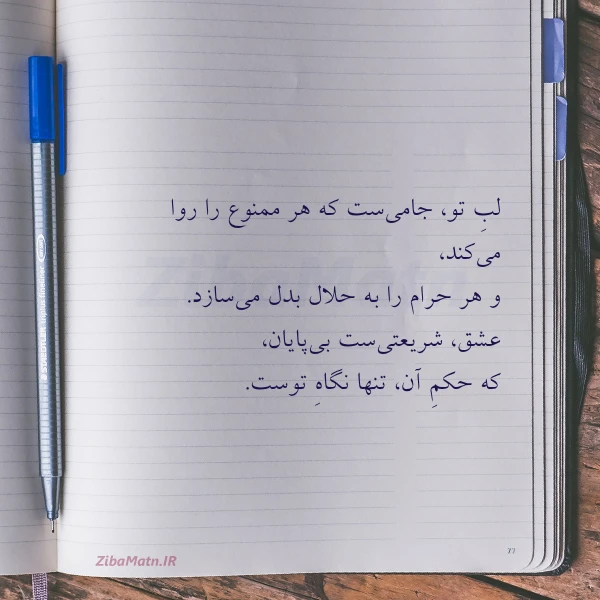 لبِ تو، جامی‌ست که هر ممنوع را روا
می‌کند،
و هر حرام را به حلال بدل می‌سازد.
عشق، شریعتی‌ست بی‌پایان،
که حکمِ آن، تنها نگاهِ توست.
ZibaMatn.IR